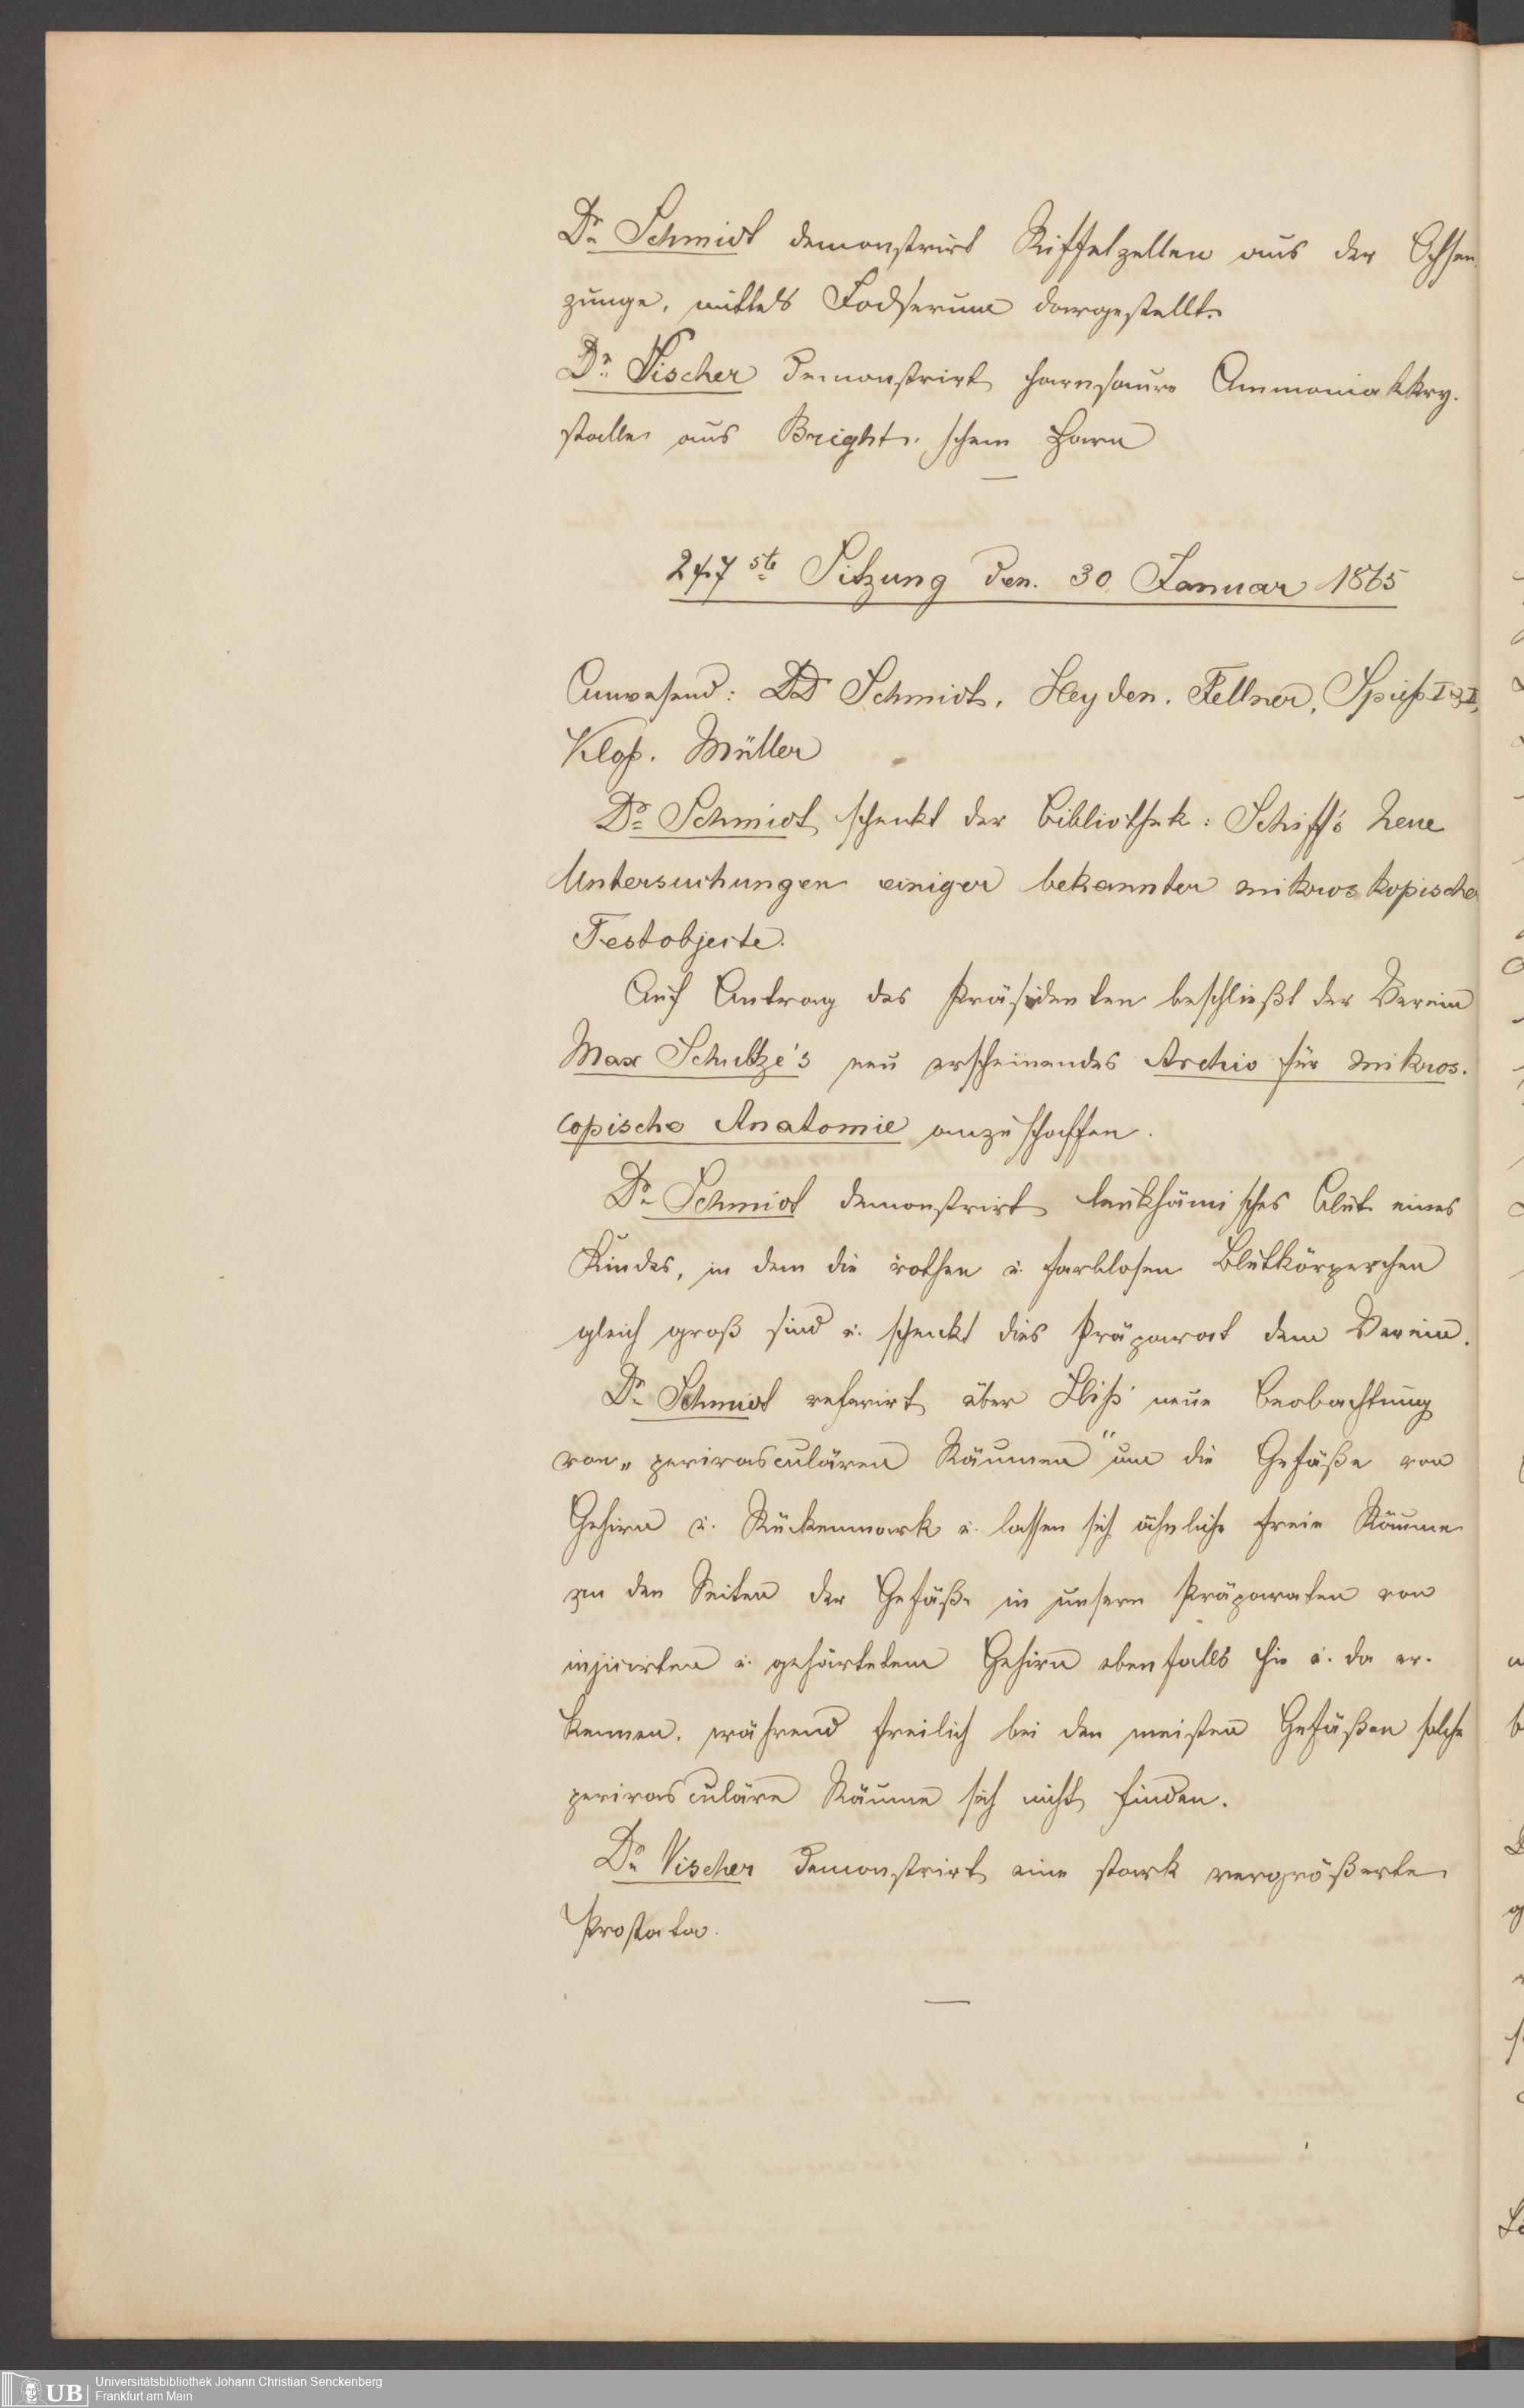 Dr. Schmidt demonstrirt Riffelzellen aus der Ochsen-
zunge, mittels Jodserum dargestellt.
Dr. Vischer demonstrirt harnsaure Ammoniakkry-
stalle aus Bright'schem Harn
247ste Sitzung den. 30 Januar 1865
Anwesend: DD Schmidt, Heyden, Fellner, Spieß I & II,
Kloß. Müller
Dr. Schmidt schenkt der Bibliothek: Schiff's Neue
Untersuchungen einiger bekannter mikroskopische
Testobjecte.
Auf Antrag des Präsidenten beschließt der Verein
Max Schultze's neu erscheinendes Archiv für mikros-
copische Anatomie anzuschaffen.
Dr. Schmidt demonstrirt leukhämisches Blut eines
Kindes, in dem die rothen u. farblosen Blutkörperchen
gleich groß sind u. schenkt dies Präparat dem Verein.
Dr. Schmidt referirt über neue Beobachtung
von „perivasculären Räumen" um die Gefäße von
Gehirn u. Rückenmark u. lassen sich ähnliche freie Räume
zu den Seiten der Gefäße in unsern Präparaten von
injicirten u. gehärtetem Gehirn ebenfalls hie u. da er-
kennen, während freilich bei den meisten Gefäßen solche
perivasculäre Räume sich nicht finden.
Dr. Vischer demonstrirt eine stark vergrößerte
Prostata.
UB
Universitätsbibliothek Johann Christian Senckenberg
Frankfurt am Main